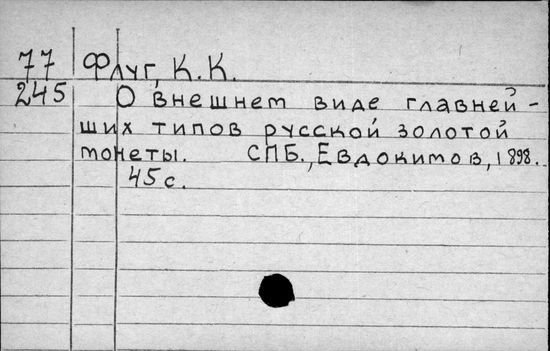 77 Флуг, К. К.
245 О внешнем виде главней-
ших типов русской золотой
монеты. СПБ., Евдокимов, 1898.
45 с.